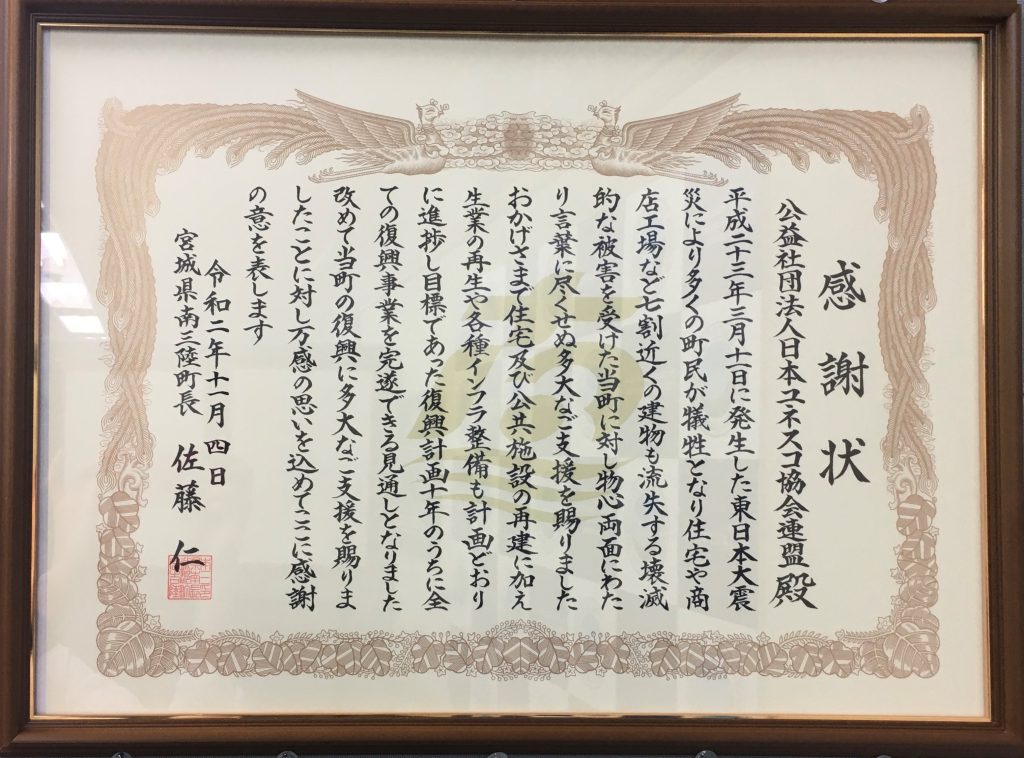 感謝状
公益社団法人日本ユネスコ協会連盟 殿
平成二十三年三月十一日に発生した東日本大震
災により多くの町民が犠牲となり住宅や商
店工場など七割近くの建物も流失する壊滅
的な被害を受けた当町に対し物心両面にわた
り言葉に尽くせぬ多大なご支援を賜りました
おかげさまで住宅及び公共施設の再建に加え
生業の再生や各種インフラ整備も計画どおり
に進捗し目標であった復興計画十年のうちに全
ての復興事業を完遂できる見通しとなりました
改めて当町の復興に多大なご支援を賜りま
したことに対し万感の思いを込めてここに感謝
の意を表します
令和二年十一月四日
宮城県南三陸町長 佐藤 仁